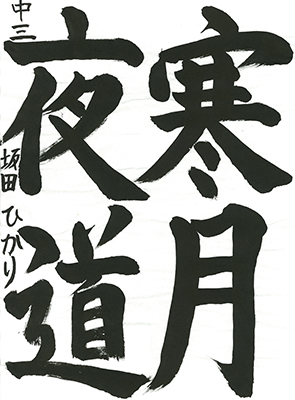 寒月
夜道
中三 坂田ひかり